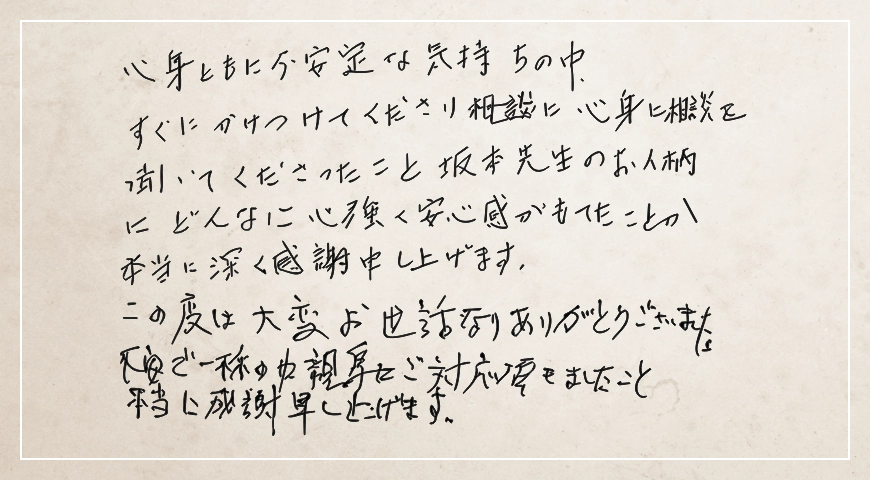 心身ともに不安定な気持ちの中
すぐにかけつけてくださり相談に心身に相談を
聞いてくださったこと坂本先生のお人柄
にどんなに心強く安心感がもてたことか
本当に深く感謝申し上げます.
この度は大変お世話なりありがとうございました。
で一様の ご対応 ましたこと
本当に感謝申し上げます。